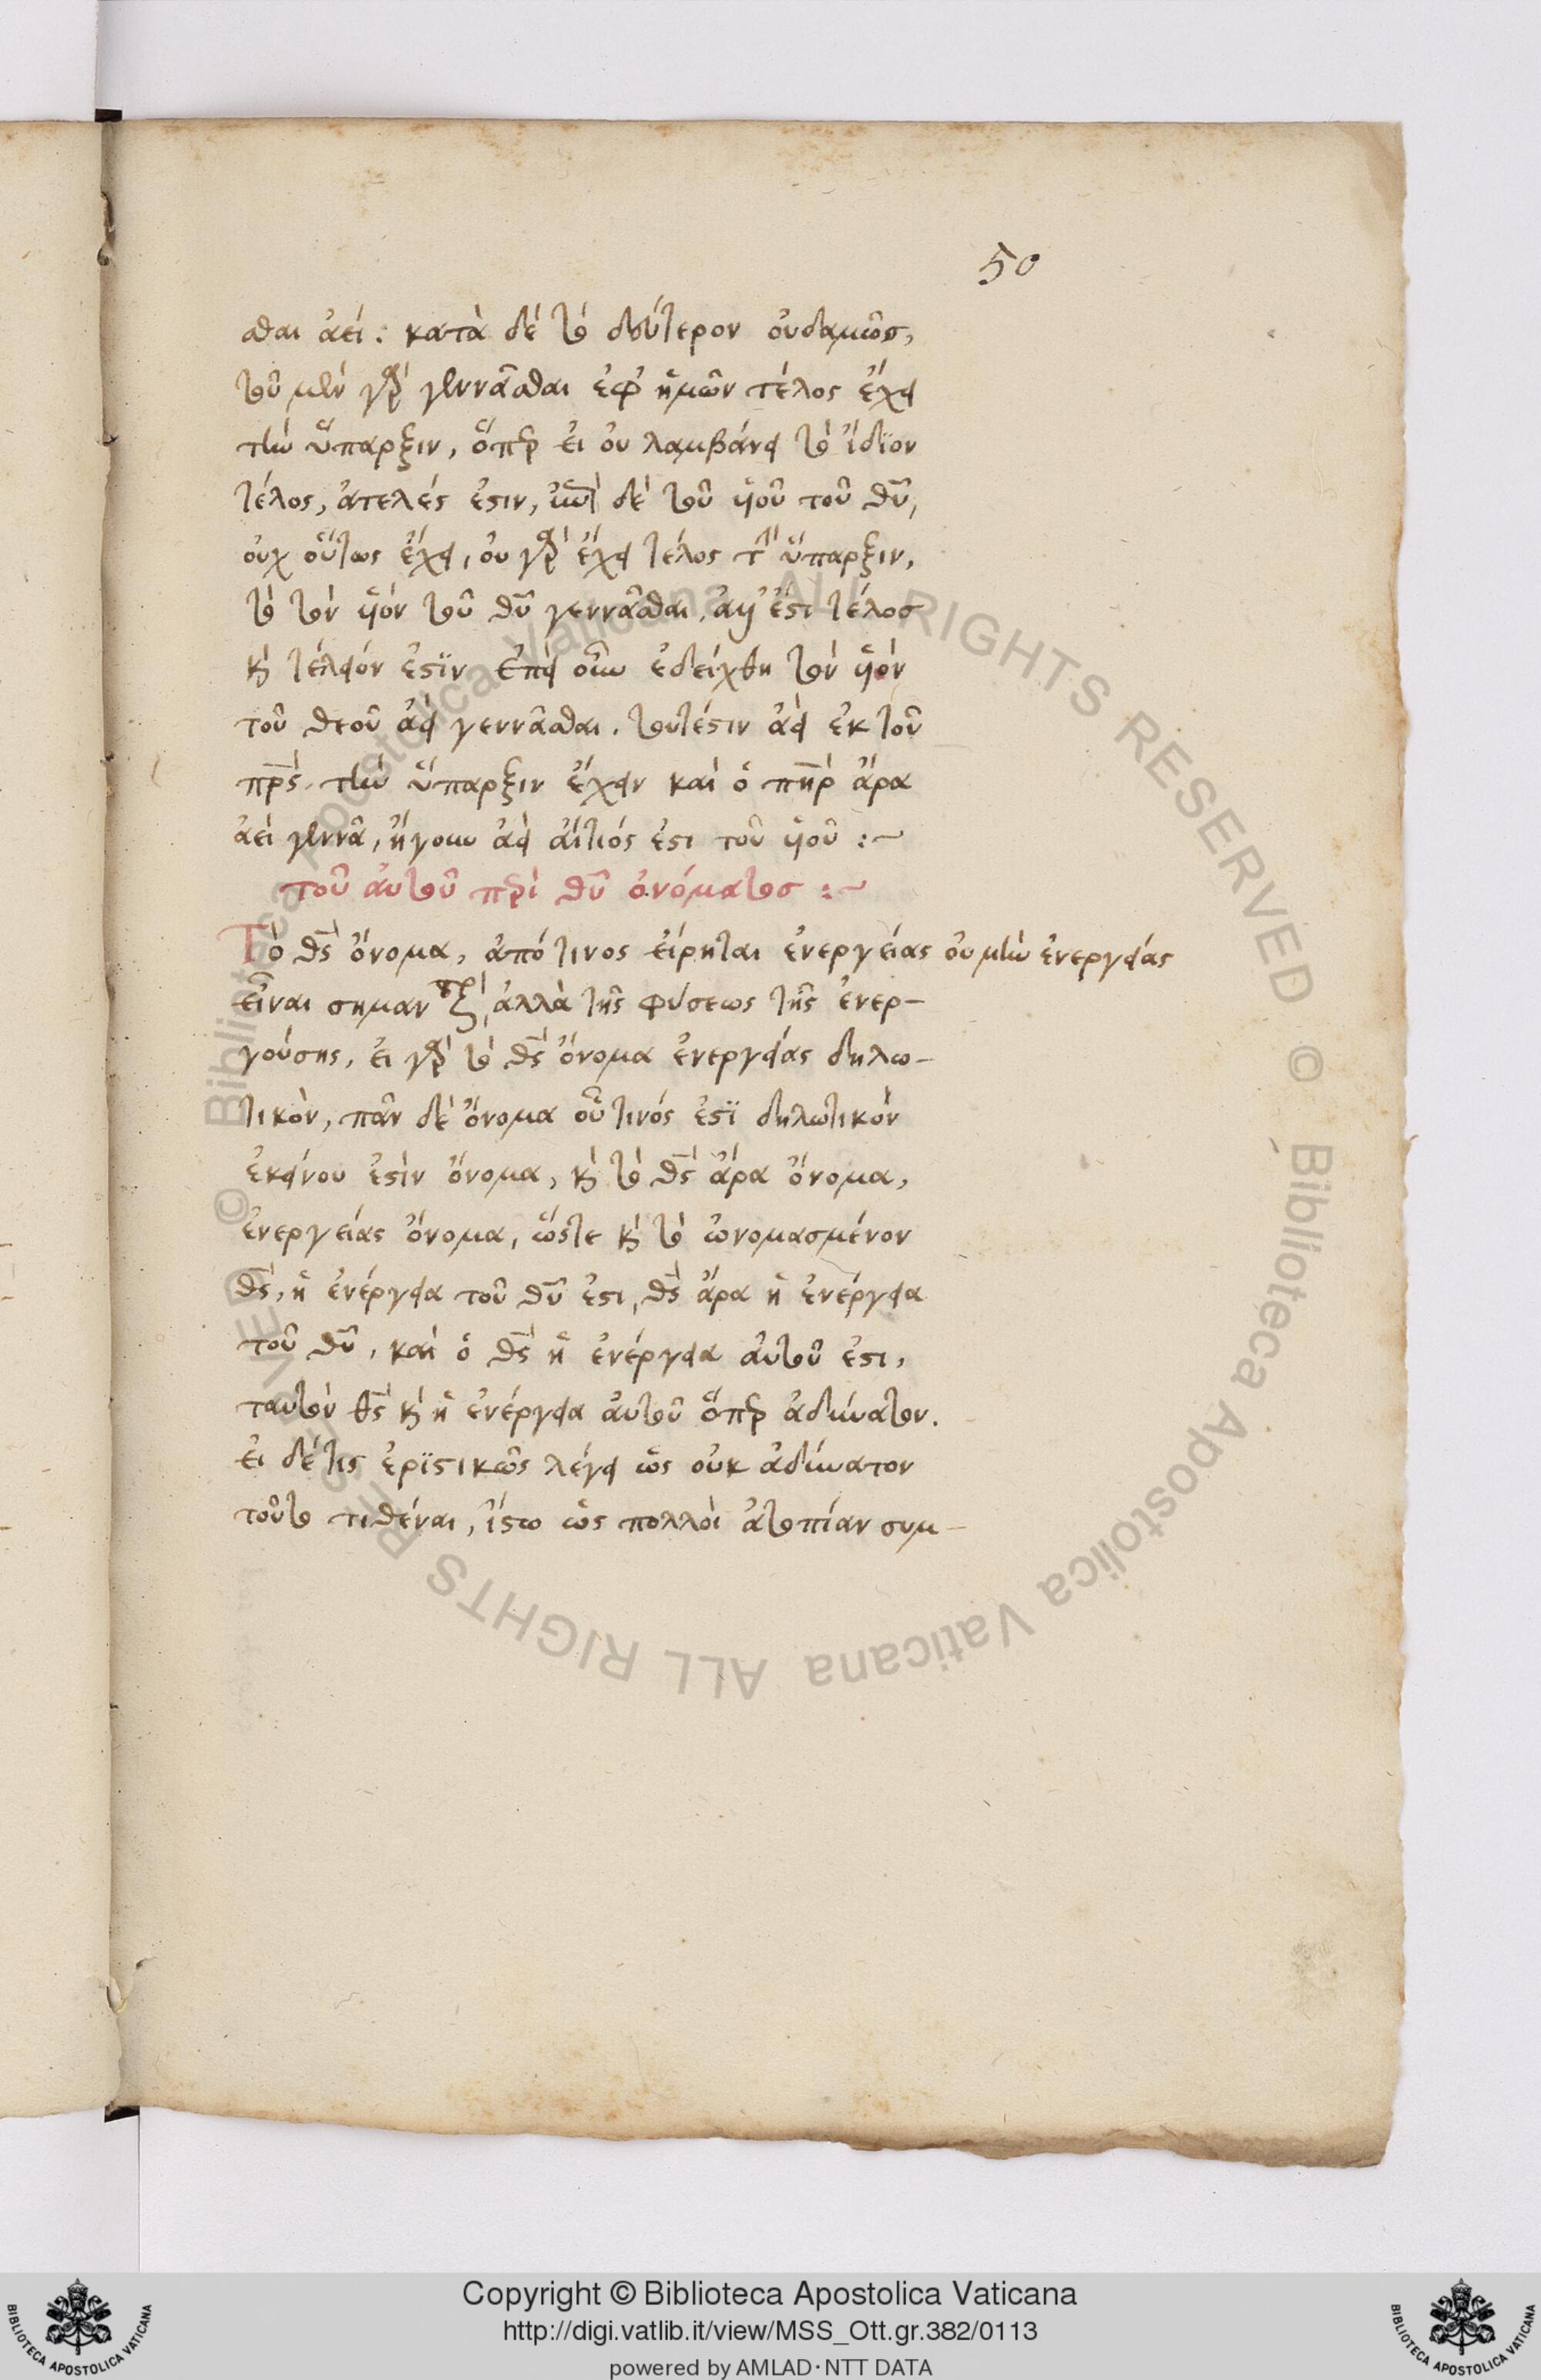 50
σθαι ἀεί: κατὰ δὲ τὸ δεύτερον οὐδαμῶσ,
τοῦ μὲν γὰρ γεννᾶσθαι ἐφ' ἡμῶν τέλος ἔχει
τὴν ὕπαρξιν, ὅπερ εἰ οὐ λαμβάνει τὸ ἴδϊον
τέλος, ἀτελές ἐστιν, δὲ τοῦ ὑιοῦ τοῦ θῦ,
οὐχ οὕτως ἔχει, οὐ γὰρ ἔχει τέλος τὴν ὕπαρξιν,
τὸ τὸν ὑιόν τοῦ θῦ γεννᾶσθαι, ἀεὶ ἔστι τέλοσ
κὶ τέλειόν ἐστϊν ἐπεὶ οὖν ἐδείχθη τὸν ὑιόν
τοῦ θεοῦ ἀεὶ γεννᾶσθαι. τουτέστιν ἀεὶ ἐκ τοῦ
πρς τὴν ὕπαρξιν ἔχειν καὶ ὁ πηρ ἄρα
ἀεὶ γεννᾶ, ἤγουν ἀεὶ ἄιτιός ἐστι τοῦ ὑιοῦ :~
τοῦ ἀυτοῦ περὶ θῦ ὀνόματοσ :~
Τὸ θς ὄνομα, ἀπό τινος εἴρηται ἐνεργείας οὐ μὴν ἐνεργείας
εἶναι σημαν ἀλλὰ τῆς φύσεως τῆς ἐνερ-
γούσης, εἰ γὰρ τὸ θς ὄνομα ἐνεργείας δηλω-
τικὸν, πᾶν δὲ ὄνομα οὗ τινός ἐστϊ δηλωτικὸν
ἐκείνου ἐστὶν ὄνομα, κὶ τὸ θς ἄρα ὄνομα,
ἐνεργείας ὄνομα, ὥστε κὶ τὸ ὠνομασμένον
θς, ἡ ἐνέργεια τοῦ θῦ ἐστι, θς ἄρα ἡ ἐνέργεια
τοῦ θῦ, καὶ ὁ θς ἡ ἐνέργεια ἀυτοῦ ἐστι,
ταυτὸν θς κὶ ἡ ἐνέργεια ἀυτοῦ ὅπερ ἀδύνατον.
εἰ δέ τις ἐρϊστικῶς λέγει ὡς οὐκ ἀδύνατον
τοῦτο τιθέναι, ἴστω ὡς πολλὸι ἀτοπίαν συμ-
© Biblioteca Apostolica Vaticana ALL RIGHTS RESERVED © Biblioteca Apostolica Vaticana ALL RIGHTS RESERVED
Copyright © Biblioteca Apostolica Vaticana
http://digi.vatlib.it/view/MSS_Ott.gr.382/0113
powered by AMLAD·NTT DATA
BIBLIOTECA APOSTOLICA VATICANA
BIBLIOTECA APOSTOLICA VATICANA